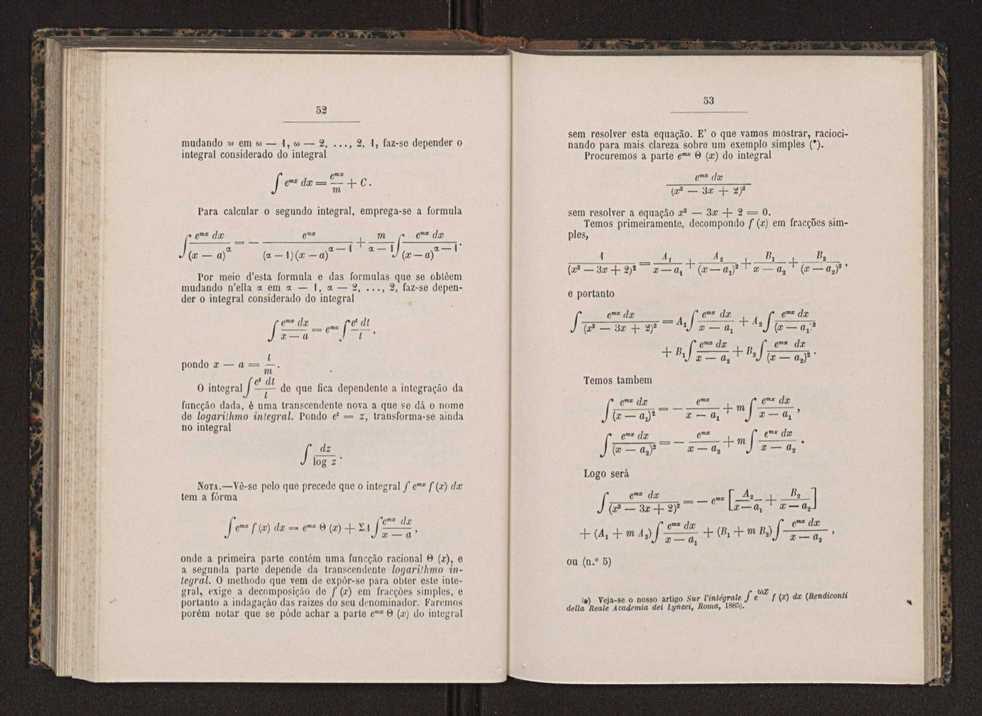 52
mudando ω em ω — 1, ω — 2, ..., 2, 1, faz-se depender o
integral considerado do integral
∫ e^{mx} dx = e^{mx}/m + C.
Para calcular o segundo integral, emprega-se a formula
∫ e^{mx} dx/(x — a)^α = — e^{mx}/((α — 1)(x — a)^{α — 1}) + m/(α — 1) ∫ e^{mx} dx/(x — a)^{α — 1}.
Por meio d'esta formula e das formulas que se obtêem
mudando n'ella α em α — 1, α — 2, ..., 2, faz-se depen-
der o integral considerado do integral
∫ e^{mx} dx/(x — a) = e^{ma} ∫ e^t dt/t,
pondo x — a = t/m.
O integral ∫ e^t dt/t de que fica dependente a integração da
funcção dada, é uma transcendente nova a que se dá o nome
de logarithmo integral. Pondo e^t = z, transforma-se ainda
no integral
∫ dz/log z.
NOTA.—Vê-se pelo que precede que o integral ∫ e^{mx} f (x) dx
tem a fórma
∫ e^{mx} f (x) dx = e^{mx} Θ (x) + ΣA ∫ e^{mx} dx/(x — a),
onde a primeira parte contém uma funcção racional Θ (x), e
a segunda parte depende da transcendente logarithmo in-
tegral. O methodo que vem de expôr-se para obter este inte-
gral, exige a decomposição de f (x) em fracções simples, e
portanto a indagação das raizes do seu denominador. Faremos
porém notar que se póde achar a parte e^{mx} Θ (x) do integral
53
sem resolver esta equação. E' o que vamos mostrar, racioci-
nando para mais clareza sobre um exemplo simples (*).
Procuremos a parte e^{mx} Θ (x) do integral
e^{mx} dx/(x² — 3x + 2)²
sem resolver a equação x² — 3x + 2 = 0.
Temos primeiramente, decompondo f (x) em fracções sim-
ples,
1/(x² — 3x + 2)² = A₁/(x — a₁) + A₂/(x — a₁)² + B₁/(x — a₂) + B₂/(x — a₂)²,
e portanto
∫ e^{mx} dx/(x² — 3x + 2)² = A₁ ∫ e^{mx} dx/(x — a₁) + A₂ ∫ e^{mx} dx/(x — a₁)²
+ B₁ ∫ e^{mx} dx/(x — a₂) + B₂ ∫ e^{mx} dx/(x — a₂)².
Temos tambem
∫ e^{mx} dx/(x — a₁)² = — e^{mx}/(x — a₁) + m ∫ e^{mx} dx/(x — a₁),
∫ e^{mx} dx/(x — a₂)² = — e^{mx}/(x — a₂) + m ∫ e^{mx} dx/(x — a₂).
Logo será
∫ e^{mx} dx/(x² — 3x + 2)² = — e^{mx} [A₂/(x — a₁) + B₂/(x — a₂)]
+ (A₁ + m A₂) ∫ e^{mx} dx/(x — a₁) + (B₁ + m B₂) ∫ e^{mx} dx/(x — a₂),
ou (n.º 5)
(*) Veja-se o nosso artigo Sur l'intégrale ∫ e^{ωx} f (x) dx (Rendiconti
della Reale Academia dei Lyncei, Roma, 188